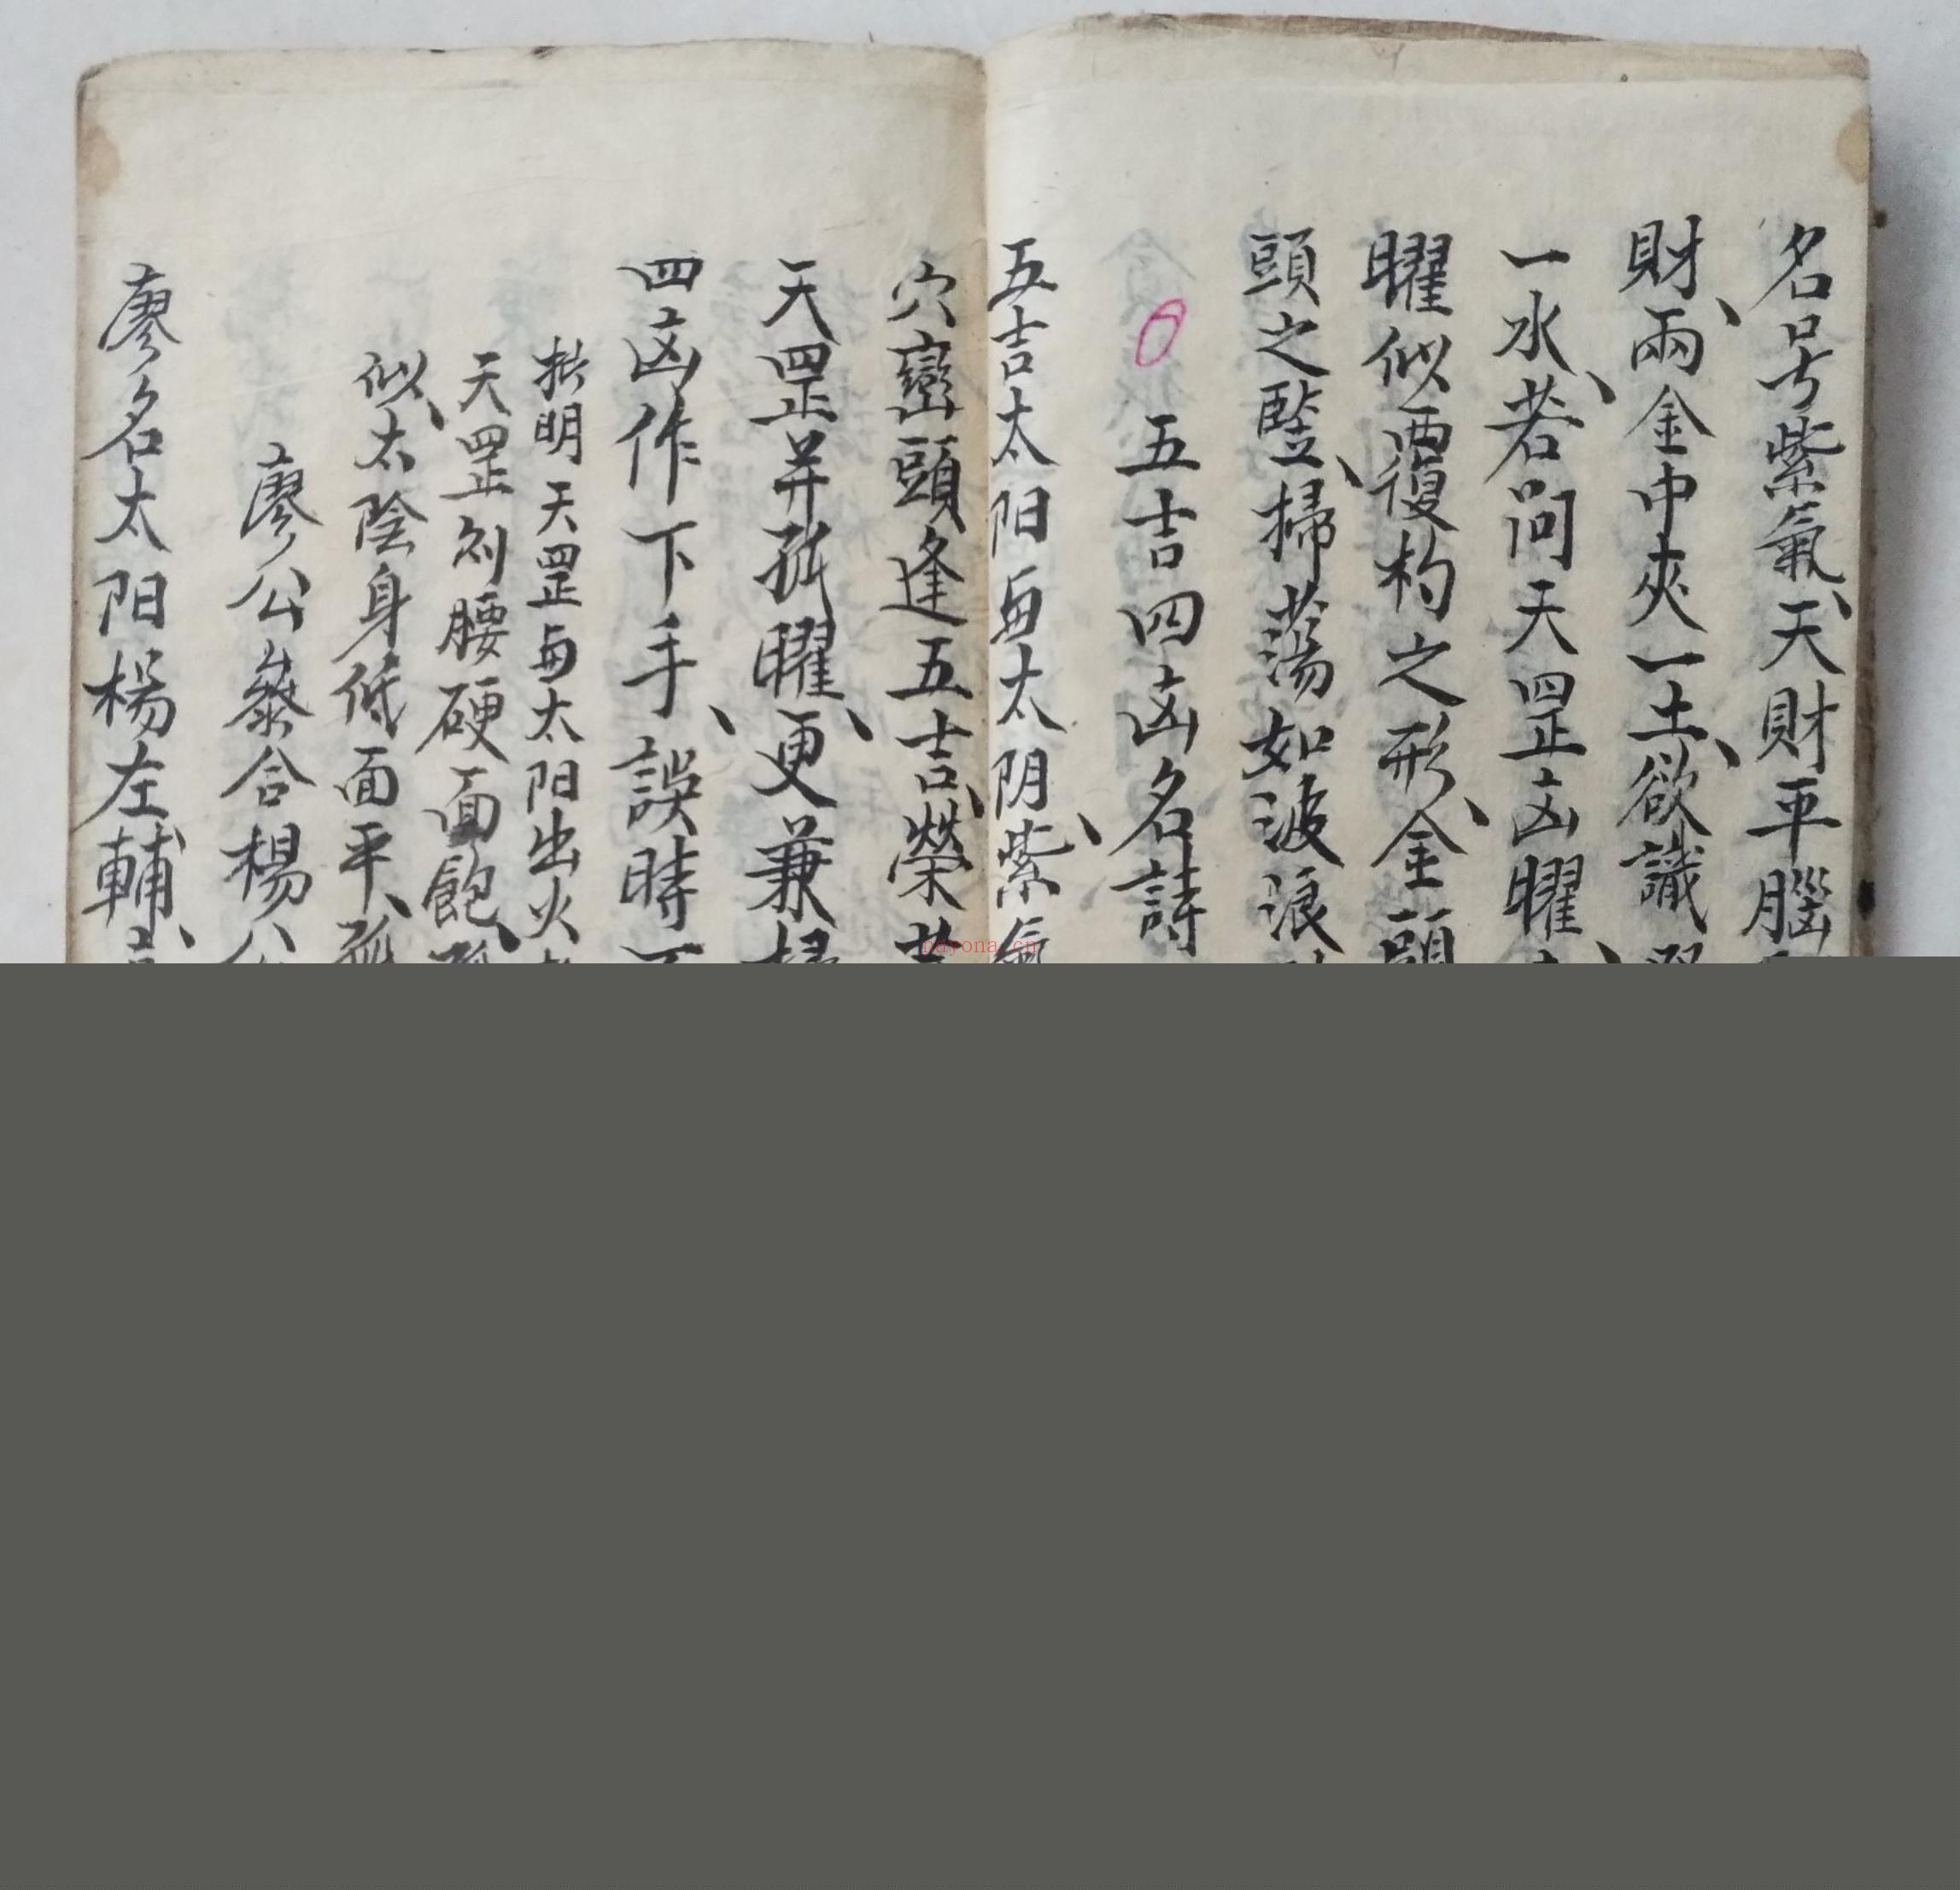 名号紫氣、天財平腦
財、兩金中夾一土、欲識
一水、若问天罡凶曜
曜似覆杓之形、金頭
頭之竖、掃荡如波浪
五吉四凶名詩
五吉太阳与太阴、紫氣
穴巒頭逢五吉、榮
天罡并孤曜、更兼掃
四凶作下手、誤時
批明天罡与太阳出火
天罡剑腰硬面飽、孤
似、太陰身低面平、孤
廖公叅合楊公
廖名太阳楊左輔、
bayona.cn